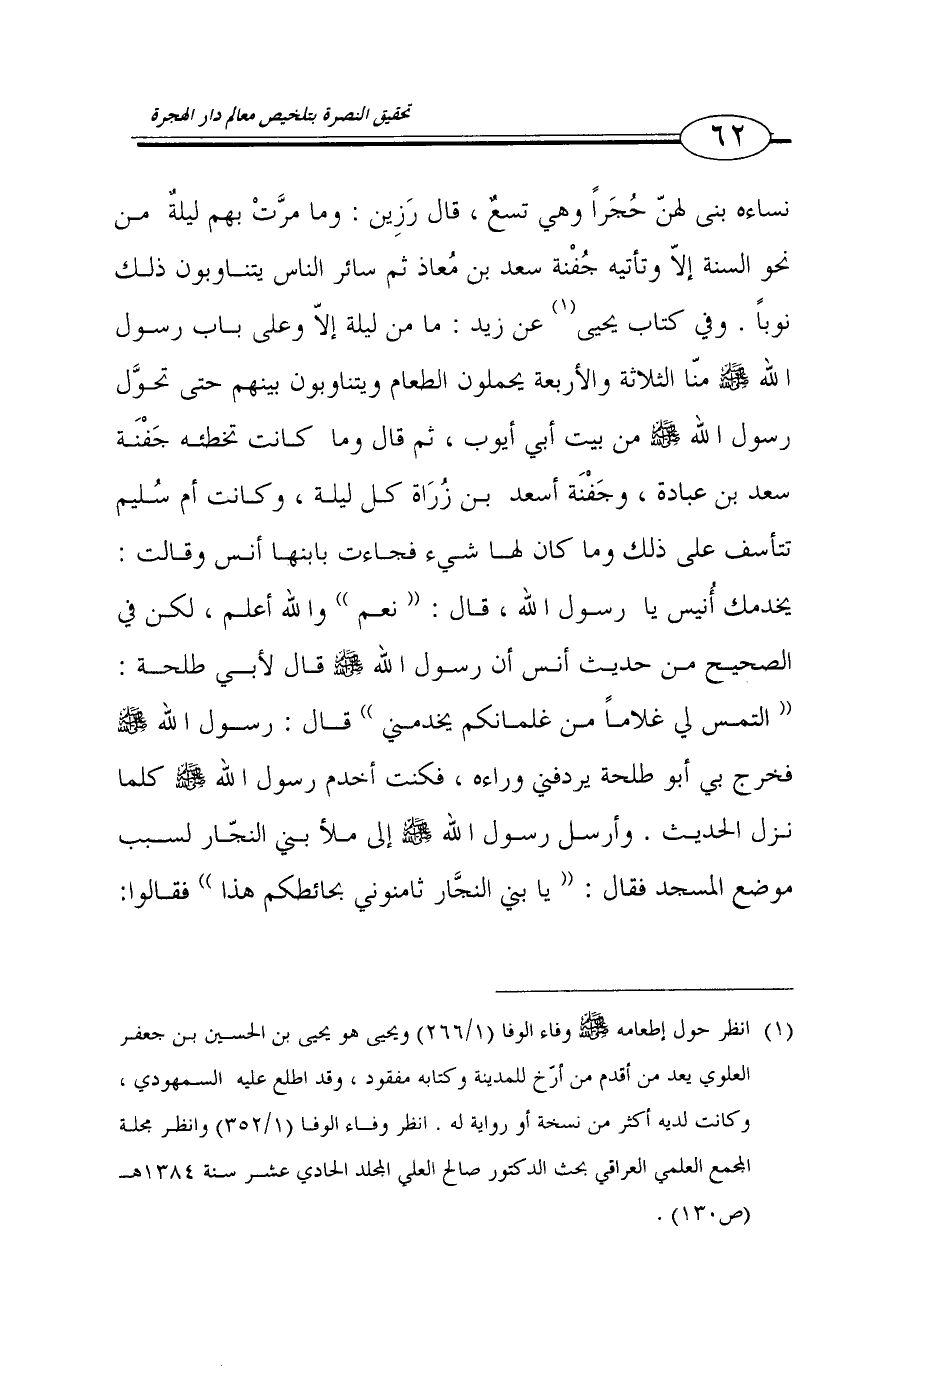 تحقيق النصرة بتلخيص معالم دار الهجرة
٦٢
نساءه بنى لهنّ حُجَراً وهي تسعٌ ، قال رَزِين : وما مرَّتْ بهم ليلةٌ من
نحو السنة إلاّ وتأتيه جُفْنة سعد بن مُعاذ ثم سائر الناس يتناوبون ذلك
نوباً . وفي كتاب يحيى(١) عن زيد : ما من ليلة إلاّ وعلى باب رسول
الله ﷺ منّا الثلاثة والأربعة يحملون الطعام ويتناوبون بينهم حتى تحوَّل
رسول الله ﷺ من بيت أبي أيوب ، ثم قال وما كانت تخطئه جَفْنَة
سعد بن عبادة ، وجَفْنَة أسعد بن زُرَاة كل ليلة ، وكانت أم سُليم
تتأسف على ذلك وما كان لها شيء فجاءت بابنها أنس وقالت :
يخدمك أُنيس يا رسول الله ، قال : (( نعم )) والله أعلم ، لكن في
الصحيح من حديث أنس أن رسول الله ﷺ قال لأبي طلحة :
(( التمس لي غلاماً من غلمانكم يخدمني )) قال : رسول الله ﷺ
فخرج بي أبو طلحة يردفني وراءه ، فكنت أخدم رسول الله ﷺ كلما
نزل الحديث . وأرسل رسول الله ﷺ إلى ملأ بني النجّار لسبب
موضع المسجد فقال : (( يا بني النجَّار ثامنوني بحائطكم هذا )) فقالوا:
(١) انظر حول إطعامه ﷺ وفاء الوفا (٢٦٦/١) ويحيى هو يحيى بن الحسين بن جعفر
العلوي يعد من أقدم من أرّخ للمدينة وكتابه مفقود ، وقد اطلع عليه السمهودي ،
وكانت لديه أكثر من نسخة أو رواية له . انظر وفاء الوفا (٣٥٢/١) وانظر مجلة
المجمع العلمي العراقي بحث الدكتور صالح العلي المجلد الحادي عشر سنة ١٣٨٤هـ
(ص١٣٠) .